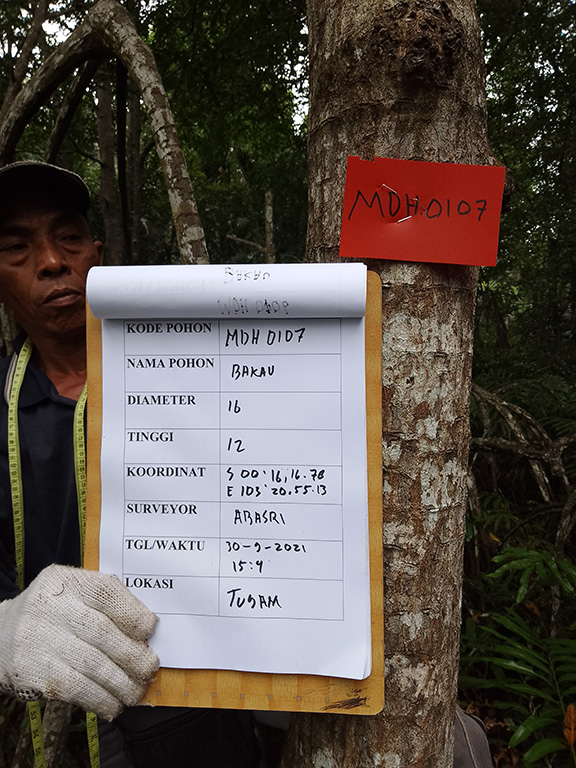 MDH.0107
BAKAU
KODE POHON MDH 0107
NAMA POHON BAKAU
DIAMETER 16
TINGGI 12
KOORDINAT S 00°16,16.78
E 103°20,55.13
SURVEYOR ABASRI
TGL/WAKTU 30-9-2021
15:4
LOKASI TUGAM